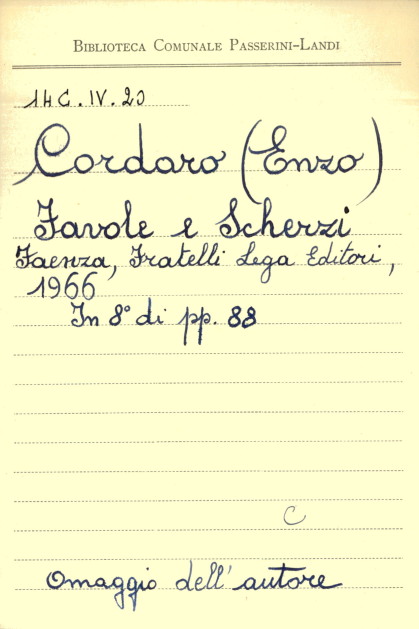 BIBLIOTECA COMUNALE PASSERINI-LANDI
14C.IV.20
Cordaro (Enzo)
Favole e Scherzi
Faenza, Fratelli Lega Editori,
1966
In 8° di pp. 88
C
Omaggio dell'autore